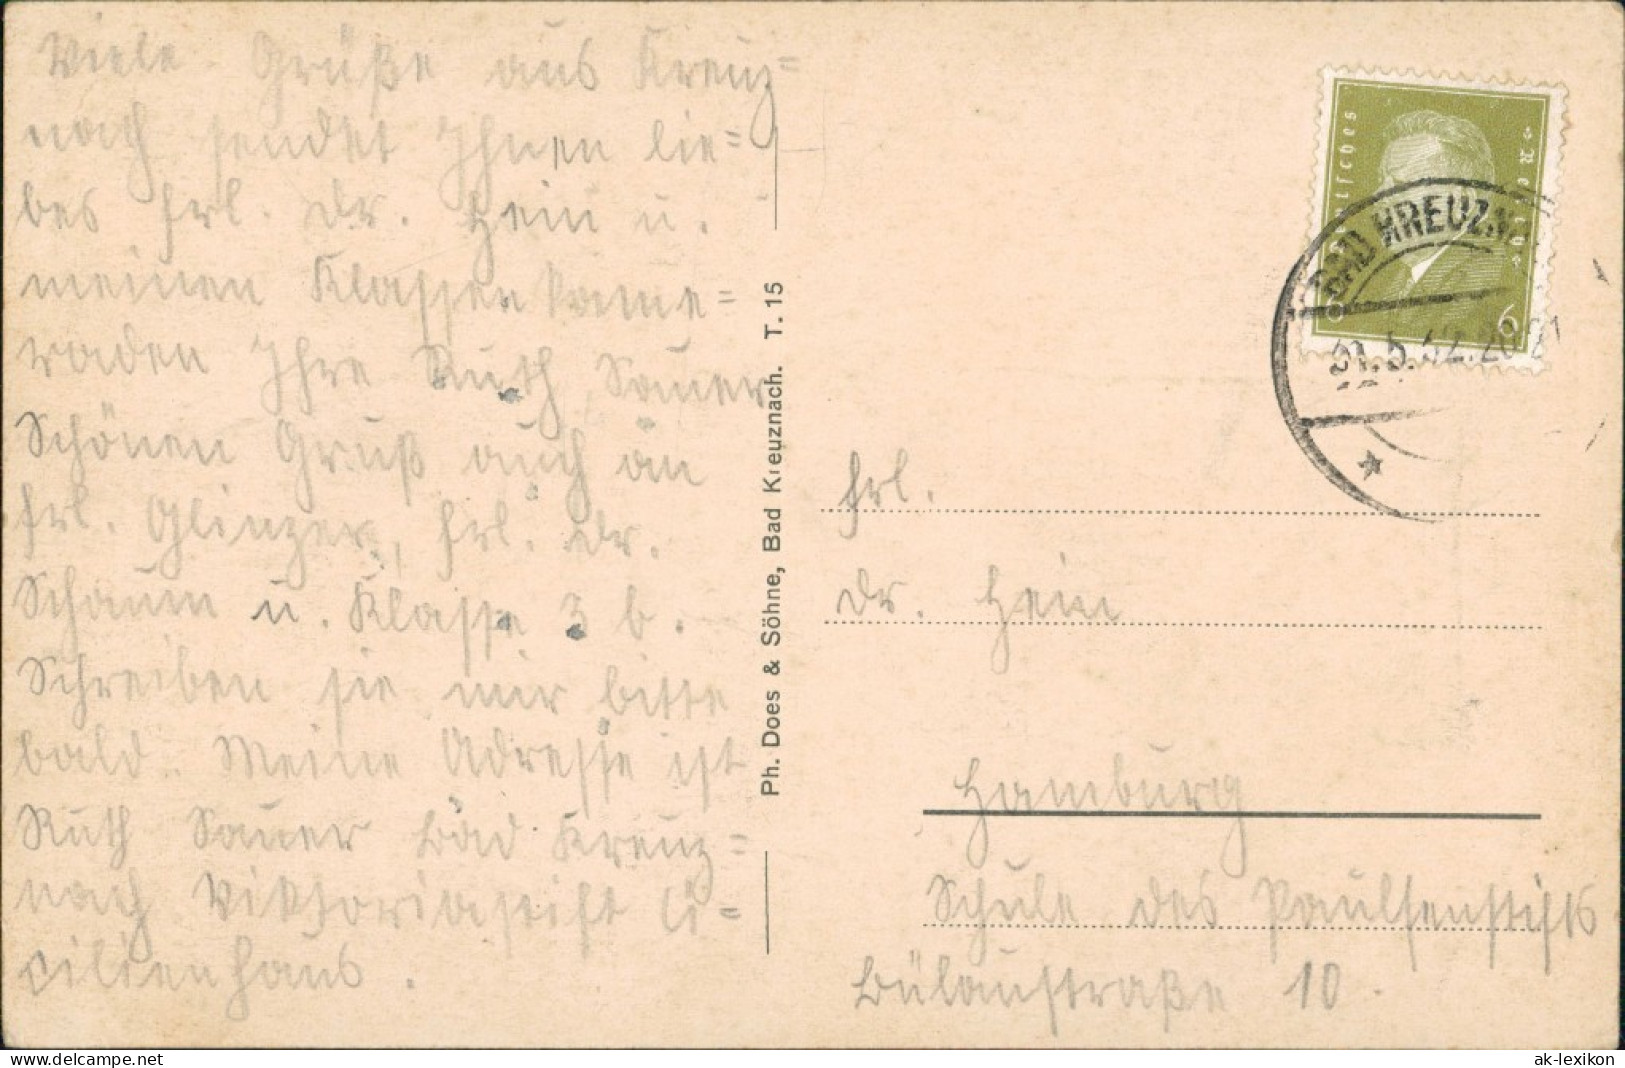 Viele Grüße aus Kreuz=
nach sendet Ihnen lie=
bes Frl. Dr. Hein u.
meinen Klassenkame=
raden Ihre Ruth Sauer
Schönen Gruß auch an
Frl. Glinzer, Frl. Dr.
Schaum u. Klasse 3 b.
Schreiben sie mir bitte
bald. Meine Adresse ist
Ruth Sauer Bad Kreuz=
nach Viktoriastift Cä=
cilienhaus.
Ph. Does & Söhne, Bad Kreuznach. T. 15
Deutsches
Reich
6
BAD KREUZN
31.5.32.20-21
Frl.
Dr. Hein
Hamburg
Schule des Paulsenstifts
Bülaustraße 10.
www.ansichtskarten-lexikon.de
ak-lexikon